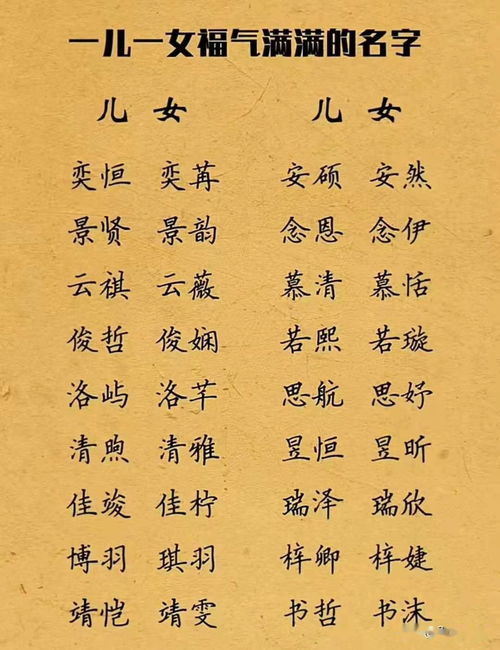 一儿一女福气满满的名字
儿 女 儿 女
奕恒 奕苒 安硕 安然
景贤 景韵 念恩 念伊
云祺 云薇 慕清 慕恬
俊哲 俊娴 若熙 若璇
洛屿 洛芊 思航 思妤
清煦 清雅 昱恒 昱昕
佳竣 佳柠 瑞泽 瑞欣
博羽 琪羽 梓卿 梓婕
靖恺 靖雯 书哲 书沫